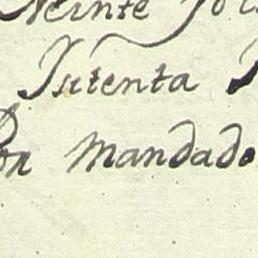 Veinte
Sctenta
Por mandado